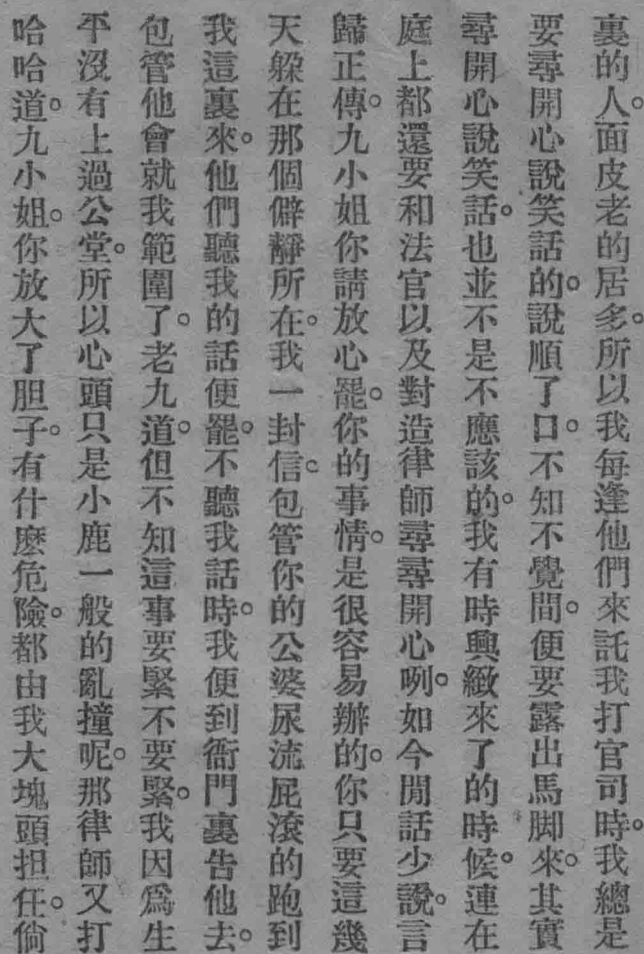 裏的人。面皮老的居多。所以我每逢他們來託我打官司時。我總是
要尋開心說笑話的。說順了口。不知不覺間。便要露出馬脚來。其實
尋開心說笑話。也並不是不應該的。我有時興緻來了的時候。連在
庭上都還要和法官以及對造律師尋尋開心咧。如今閒話少說。言
歸正傳。九小姐你請放心罷。你的事情。是很容易辦的。你只要這幾
天躱在那個僻靜所在。我一封信。包管你的公婆尿流屁滾的跑到
我這裏來。他們聽我的話便罷。不聽我話時。我便到衙門裏告他去。
包管他會就我範圍了。老九道。但不知這事要緊不要緊。我因爲生
平沒有上過公堂。所以心頭只是小鹿一般的亂撞呢。那律師又打
哈哈道。九小姐。你放大了胆子。有什麼危險。都由我大塊頭担任。倘